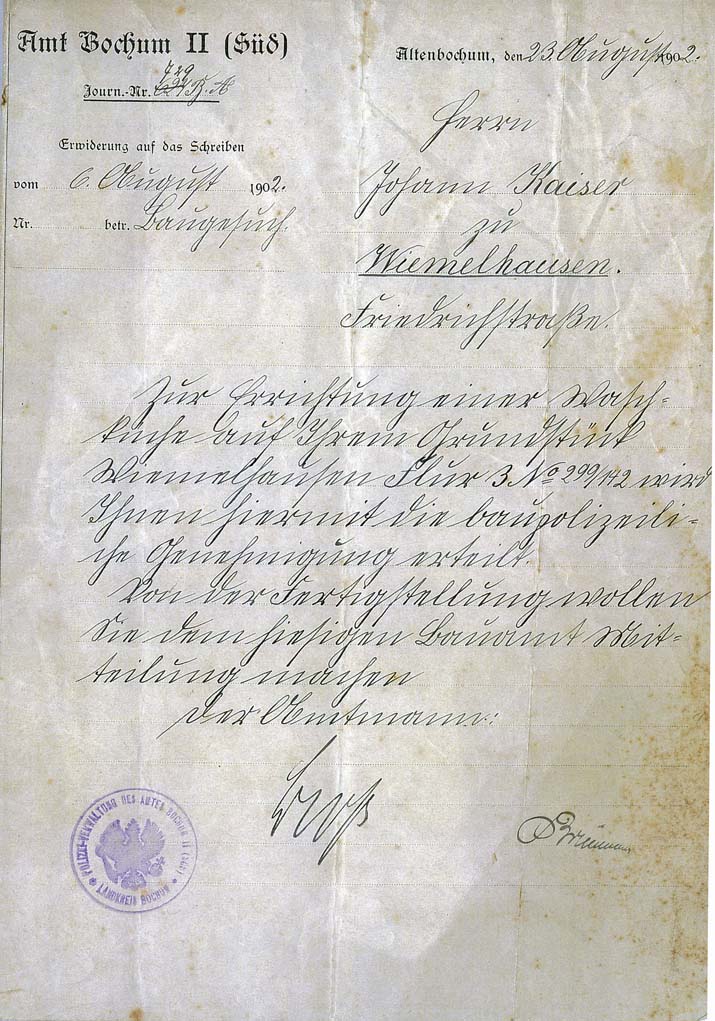 Amt Bochum II (Süd)
Altenbochum, den 23. August 1902.
Journ.-Nr.
Erwiderung auf das Schreiben
vom 6. August 1902.
Nr. betr. Baugesuch.
Herrn
Johann Kaiser
zu
Wiemelhausen.
Friedrichstraße.
Zur Errichtung einer Wasch-
küche auf Ihrem Grundstück
Wiemelhausen Flur 3 No 299/142 wird
Ihnen hiermit die baupolizeili-
che Genehmigung erteilt.
Von der Fertigstellung wollen
Sie dem hiesigen Bauamt Mit-
teilung machen
Der Amtmann:
POLIZEI-VERWALTUNG DES AMTES BOCHUM II (SÜD)
LANDKREIS BOCHUM